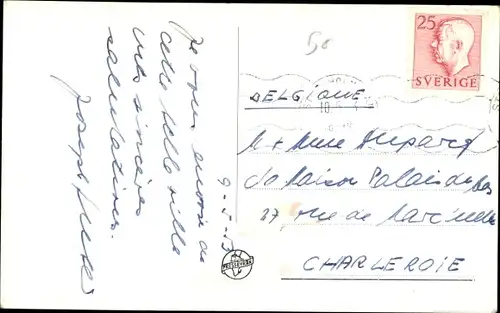 Je vous envoie de
cette belle ville
mes sincères
salutations.
Joseph
9-5-53
50
25
SVERIGE
BELGIQUE
M + Mme Dupard
c/o Maison Palais du Bas
37 rue de Marcinelle
CHARLEROIE